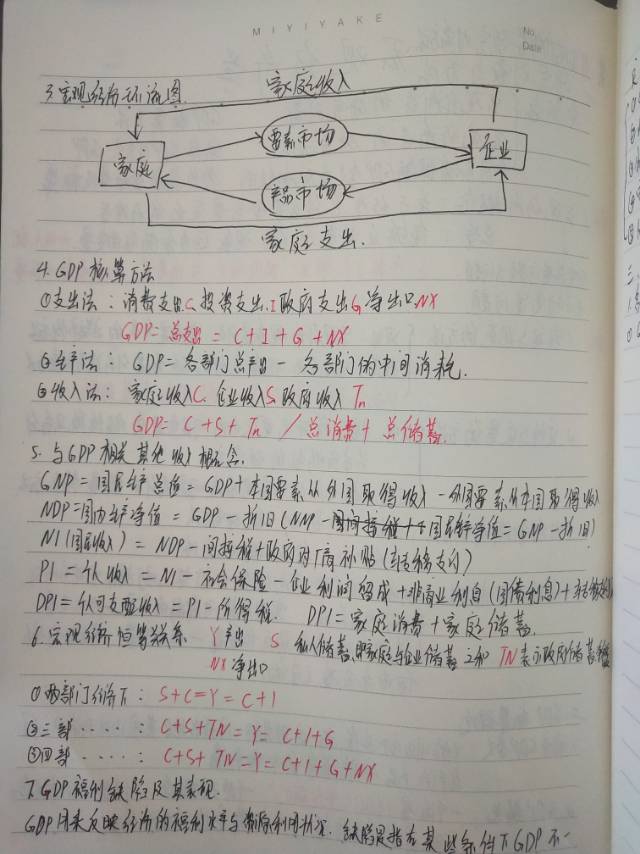 MIYIYAKE
No.
Date
3.宏观经济环流图
家庭收入
要素市场
家庭
企业
产品市场
家庭支出.
4.GDP核算方法
①支出法：消费支出C.投资支出I政府支出G净出口NX
GDP=总支出 = C+I+G+NX
②生产法：GDP=各部门总产出 - 各部门的中间消耗.
③收入法：家庭收入C.企业收入S.政府收入Tn
GDP= C+S+Tn /总消费+总储蓄.
5.与GDP相关其他收入概念.
GNP=国民生产总值=GDP+本国要素从外国取得收入-外国要素从本国取得收入
NDP=国内生产净值=GDP-折旧(NNP 国民生产净值=GNP-折旧)
NI(国民收入)=NDP-间接税+政府对厂商补贴(转移支付)
PI=个人收入=NI-社会保险-企业利润构成+非商业利息(国债利息)+
DPI=个人可支配收入=PI-所得税. DPI=家庭消费+家庭储蓄.
6.宏观经济恒等关系 Y产出 S 私人储蓄,即家庭与企业储蓄之和 TN表示政府储蓄
NX净出口
①两部门经济下：S+C=Y=C+I
②三部·····：C+S+TN=Y=C+I+G
③四部·····：C+S+TN=Y=C+I+G+NX
7.GDP福利缺陷及其表现.
GDP用来反映经济的福利水平与 利用状况.缺陷是指在某些条件下GDP不一